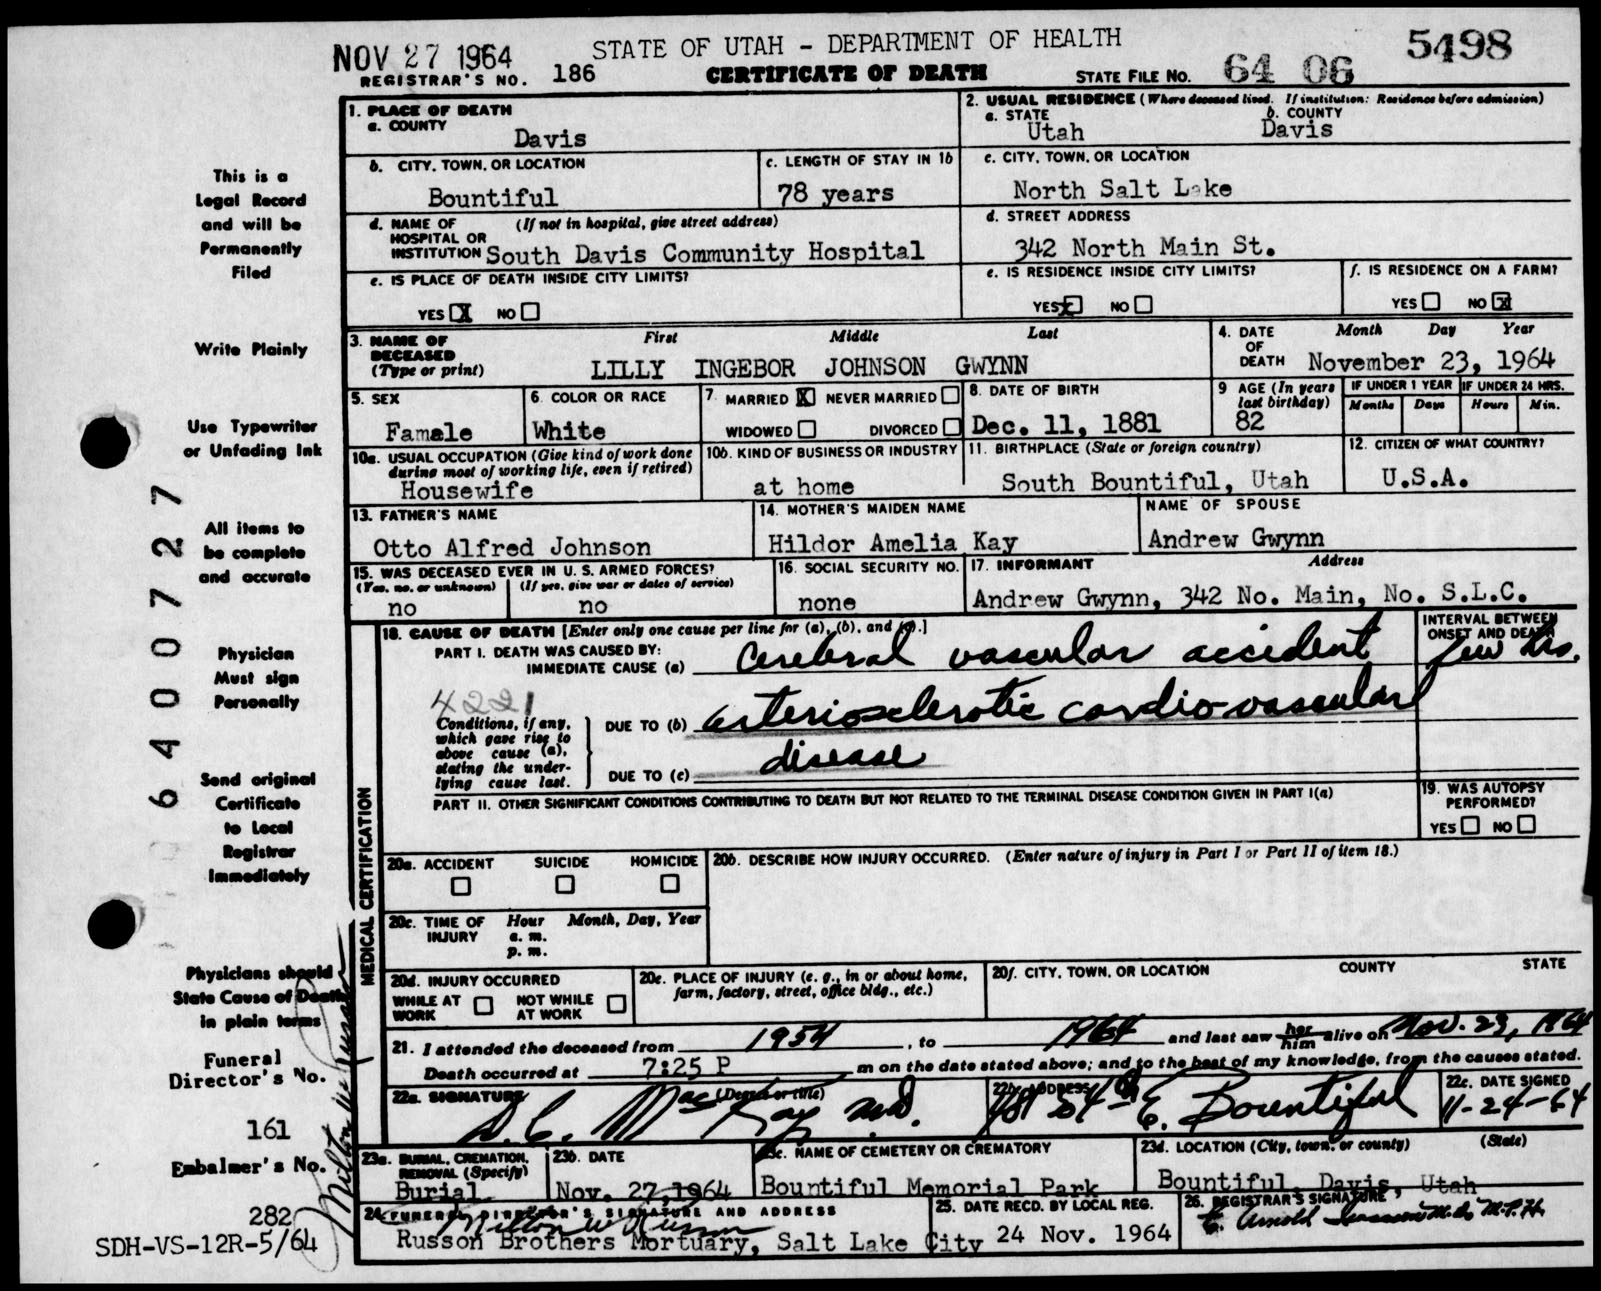 NOV 27 1964 STATE OF UTAH - DEPARTMENT OF HEALTH 5498
REGISTRAR'S NO. 186 CERTIFICATE OF DEATH STATE FILE NO. 64 06
1. PLACE OF DEATH
a. COUNTY
Davis
2. USUAL RESIDENCE (Where deceased lived. If institution: Residence before admission)
a. STATE b. COUNTY
Utah Davis
b. CITY, TOWN, OR LOCATION
Bountiful
c. LENGTH OF STAY IN 1b
78 years
c. CITY, TOWN, OR LOCATION
North Salt Lake
d. NAME OF (If not in hospital, give street address)
HOSPITAL OR
INSTITUTION South Davis Community Hospital
d. STREET ADDRESS
342 North Main St.
e. IS PLACE OF DEATH INSIDE CITY LIMITS?
YES X NO
e. IS RESIDENCE INSIDE CITY LIMITS?
YES X NO
f. IS RESIDENCE ON A FARM?
YES NO X
3. NAME OF DECEASED (Type or print)
First Middle Last
LILLY INGEBOR JOHNSON GWYNN
4. DATE OF DEATH
Month Day Year
November 23, 1964
5. SEX
Famale
6. COLOR OR RACE
White
7. MARRIED X NEVER MARRIED
WIDOWED DIVORCED
8. DATE OF BIRTH
Dec. 11, 1881
9 AGE (In years last birthday)
82
IF UNDER 1 YEAR IF UNDER 24 HRS.
Months Days Hours Min.
10a. USUAL OCCUPATION (Give kind of work done
during most of working life, even if retired)
Housewife
10b. KIND OF BUSINESS OR INDUSTRY
at home
11. BIRTHPLACE (State or foreign country)
South Bountiful, Utah
12. CITIZEN OF WHAT COUNTRY?
U.S.A.
13. FATHER'S NAME
Otto Alfred Johnson
14. MOTHER'S MAIDEN NAME
Hildor Amelia Kay
NAME OF SPOUSE
Andrew Gwynn
15. WAS DECEASED EVER IN U. S. ARMED FORCES?
(Yes, no, or unknown) (If yes, give war or dates of service)
no no
16. SOCIAL SECURITY NO.
none
17. INFORMANT Address
Andrew Gwynn, 342 No. Main, No. S.L.C.
MEDICAL CERTIFICATION
18. CAUSE OF DEATH [Enter only one cause per line for (a), (b), and (c).]
PART I. DEATH WAS CAUSED BY:
IMMEDIATE CAUSE (a) Cerebral vascular accident
INTERVAL BETWEEN
ONSET AND DEATH
few hrs.
4221
Conditions, if any,
which gave rise to
above cause (a),
stating the under-
lying cause last.
DUE TO (b) arteriosclerotic cardio-vascular
disease
DUE TO (c)
PART II. OTHER SIGNIFICANT CONDITIONS CONTRIBUTING TO DEATH BUT NOT RELATED TO THE TERMINAL DISEASE CONDITION GIVEN IN PART I(a)
19. WAS AUTOPSY
PERFORMED?
YES NO
20a. ACCIDENT SUICIDE HOMICIDE
20b. DESCRIBE HOW INJURY OCCURRED. (Enter nature of injury in Part I or Part II of item 18.)
20c. TIME OF INJURY Hour Month, Day, Year
a. m.
p. m.
20d. INJURY OCCURRED
WHILE AT WORK NOT WHILE AT WORK
20e. PLACE OF INJURY (e. g., in or about home,
farm, factory, street, office bldg., etc.)
20f. CITY, TOWN, OR LOCATION COUNTY STATE
21. I attended the deceased from 1954, to 1964 and last saw her him alive on Nov. 23, 1964
Death occurred at 7:25 P m on the date stated above; and to the best of my knowledge, from the causes stated.
22a. SIGNATURE (Degree or title)
D. C. MacKay M.D.
22b. ADDRESS
E. Bountiful
22c. DATE SIGNED
11-24-64
23a. BURIAL, CREMATION,
REMOVAL (Specify)
Burial
23b. DATE
Nov. 27, 1964
23c. NAME OF CEMETERY OR CREMATORY
Bountiful Memorial Park
23d. LOCATION (City, town, or county) (State)
Bountiful, Davis, Utah
24. FUNERAL DIRECTOR'S SIGNATURE AND ADDRESS
Milton W Russon
Russon Brothers Mortuary, Salt Lake City
25. DATE RECD. BY LOCAL REG.
24 Nov. 1964
26. REGISTRAR'S SIGNATURE
Arnold M.D. M.P.H.
This is a
Legal Record
and will be
Permanently
Filed
Write Plainly
Use Typewriter
or Unfading Ink
All items to
be complete
and accurate
Physician
Must sign
Personally
Send original
Certificate
to Local
Registrar
Immediately
Physicians should
State Cause of Death
in plain terms
Funeral
Director's No.
161
Embalmer's No.
282
SDH-VS-12R-5/64
Milton W Russon
6400727